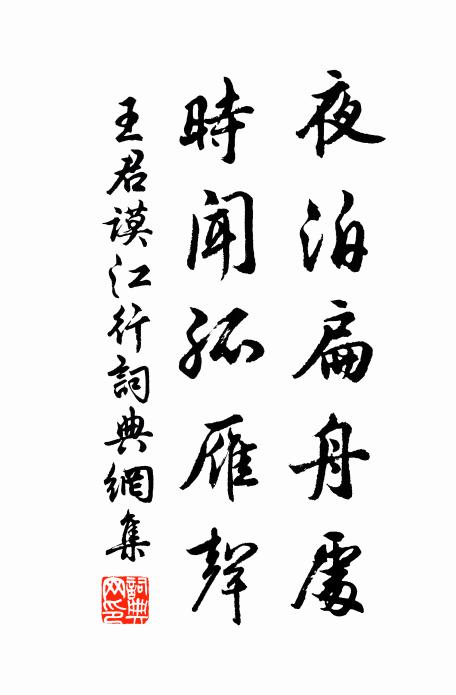 夜泊扁舟處
時聞孤雁聲
王君謨江行詞典網集
詞典網印